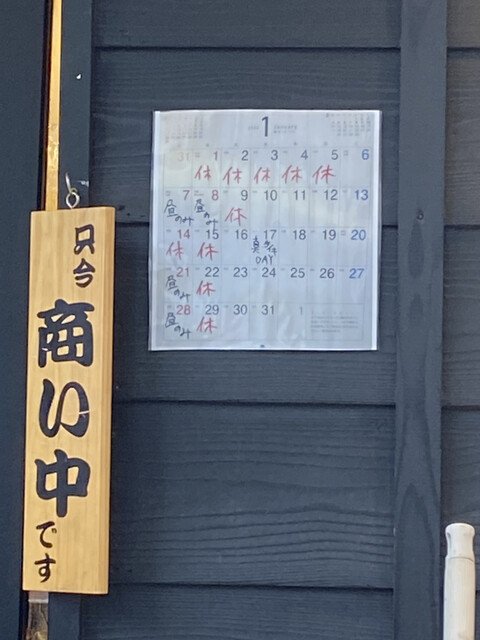 1
31 1 2 3 4 5 6
休 休 休 休 休
7 8 9 10 11 12 13
昼のみ 昼のみ 休
14 15 16 17 18 19 20
休 休 DAY
21 22 23 24 25 26 27
昼のみ 休
28 29 30 31 1
昼のみ 休
只今
商い中
です